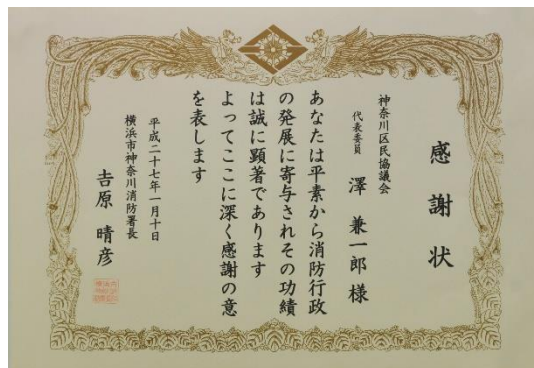 感謝状
神奈川区民協議会
代表委員 澤 兼一郎 様
あなたは平素から消防行政
の発展に寄与されその功績
は誠に顕著であります
よってここに深く感謝の意
を表します
平成二十七年一月十日
横浜市神奈川消防署長
吉原 晴彦